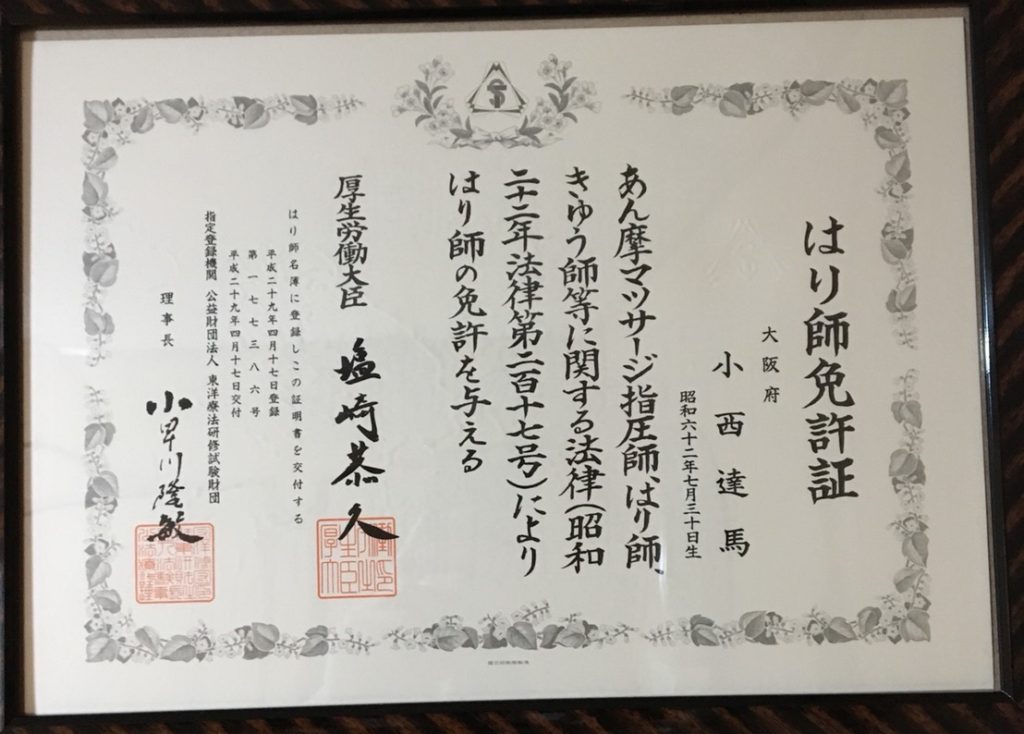 はり師免許証
大阪府
小西達馬
昭和六十二年七月三十日生
あん摩マツサージ指圧師、はり師、
きゆう師等に関する法律(昭和
二十二年法律第二百十七号)により
はり師の免許を与える
厚生労働大臣 塩崎恭久
はり師名簿に登録しこの証明書を交付する
平成二十九年四月十七日登録
第一七七三八六号
平成二十九年四月十七日交付
指定登録機関 公益財団法人 東洋療法研修試験財団
理事長 小早川隆敏